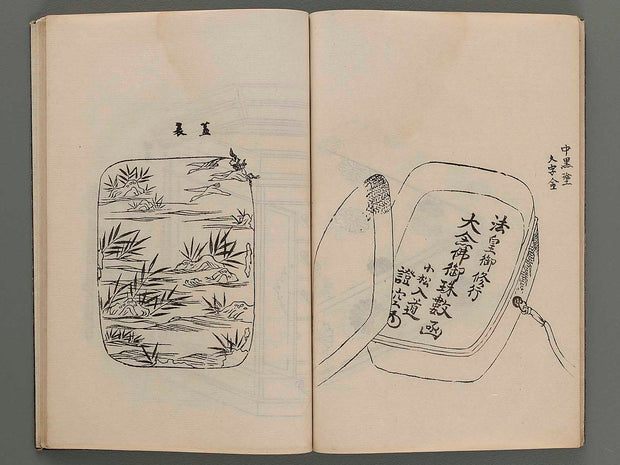 中黒塗
文字金
法皇御修行
大念佛御珠數函
小松入道
證空
蓋裏